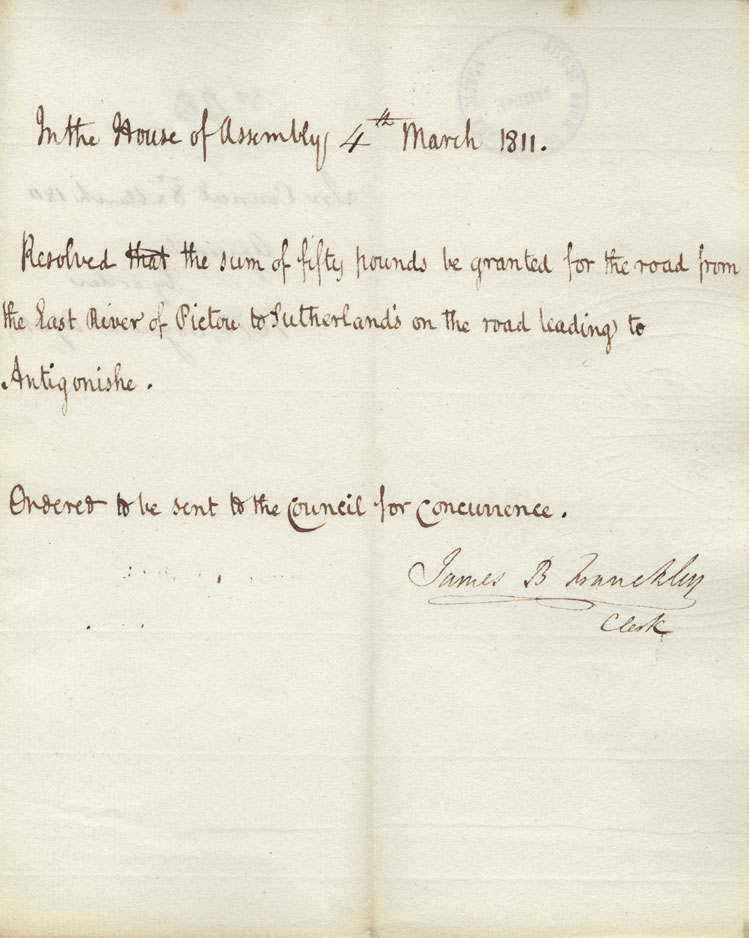 In the House of Assembly, 4th March 1811.
Resolved that the sum of fifty pounds be granted for the road from
the East River of Pictou to Sutherland's on the road leading to
Antigonishe.
Ordered to be sent to the Council for Concurrence.
James B Franckley
Clerk